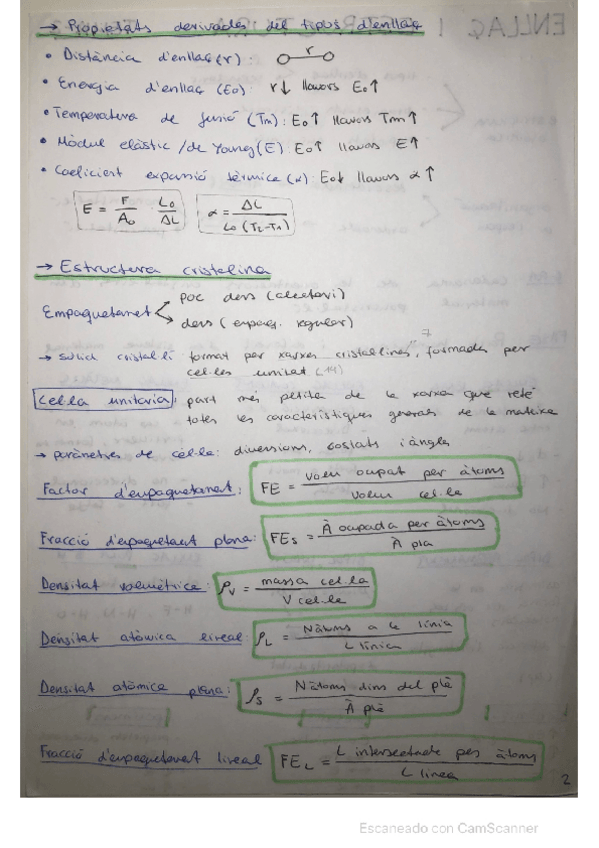 → Propietats derivades del tipus d'enllaç
• Distància d'enllaç (r): r
• Energia d'enllaç (E₀): r↓ llavors E₀↑
• Temperatura de fusió (Tm): E₀↑ llavors Tm↑
• Mòdul elàstic / de Young (E): E₀↑ llavors E↑
• Coeficient expansió tèrmica (α): E₀↓ llavors α↑
E = F/A₀ · L₀/ΔL   α = ΔL/L₀(T₂-T₁)
→ Estructura cristalina
Empaquetament
poc dens (aleatori)
dens (empaq. regular)
→ sòlid cristal·lí format per xarxes cristal·lines, formades per
7
cel·les unitat (14)
Cel·la unitaria: part més petita de la xarxa que reté
totes les característiques generals de la mateixa
→ paràmetres de cel·la: dimensions, costats i angles
Factor d'empaquetament: FE = volum ocupat per àtoms / volum cel·la
Fracció d'empaquetament plana: FEs = À ocupada per àtoms / À pla
Densitat volumètrica: ρv = massa cel·la / V cel·la
Densitat atòmica lineal: ρL = Nàtoms a la línia / L línia
Densitat atòmica plana: ρs = Nàtoms dins del plà / À plà
Fracció d'empaquetament lineal FEL = L intersectada per àtoms / L línea
2
Escaneado con CamScanner